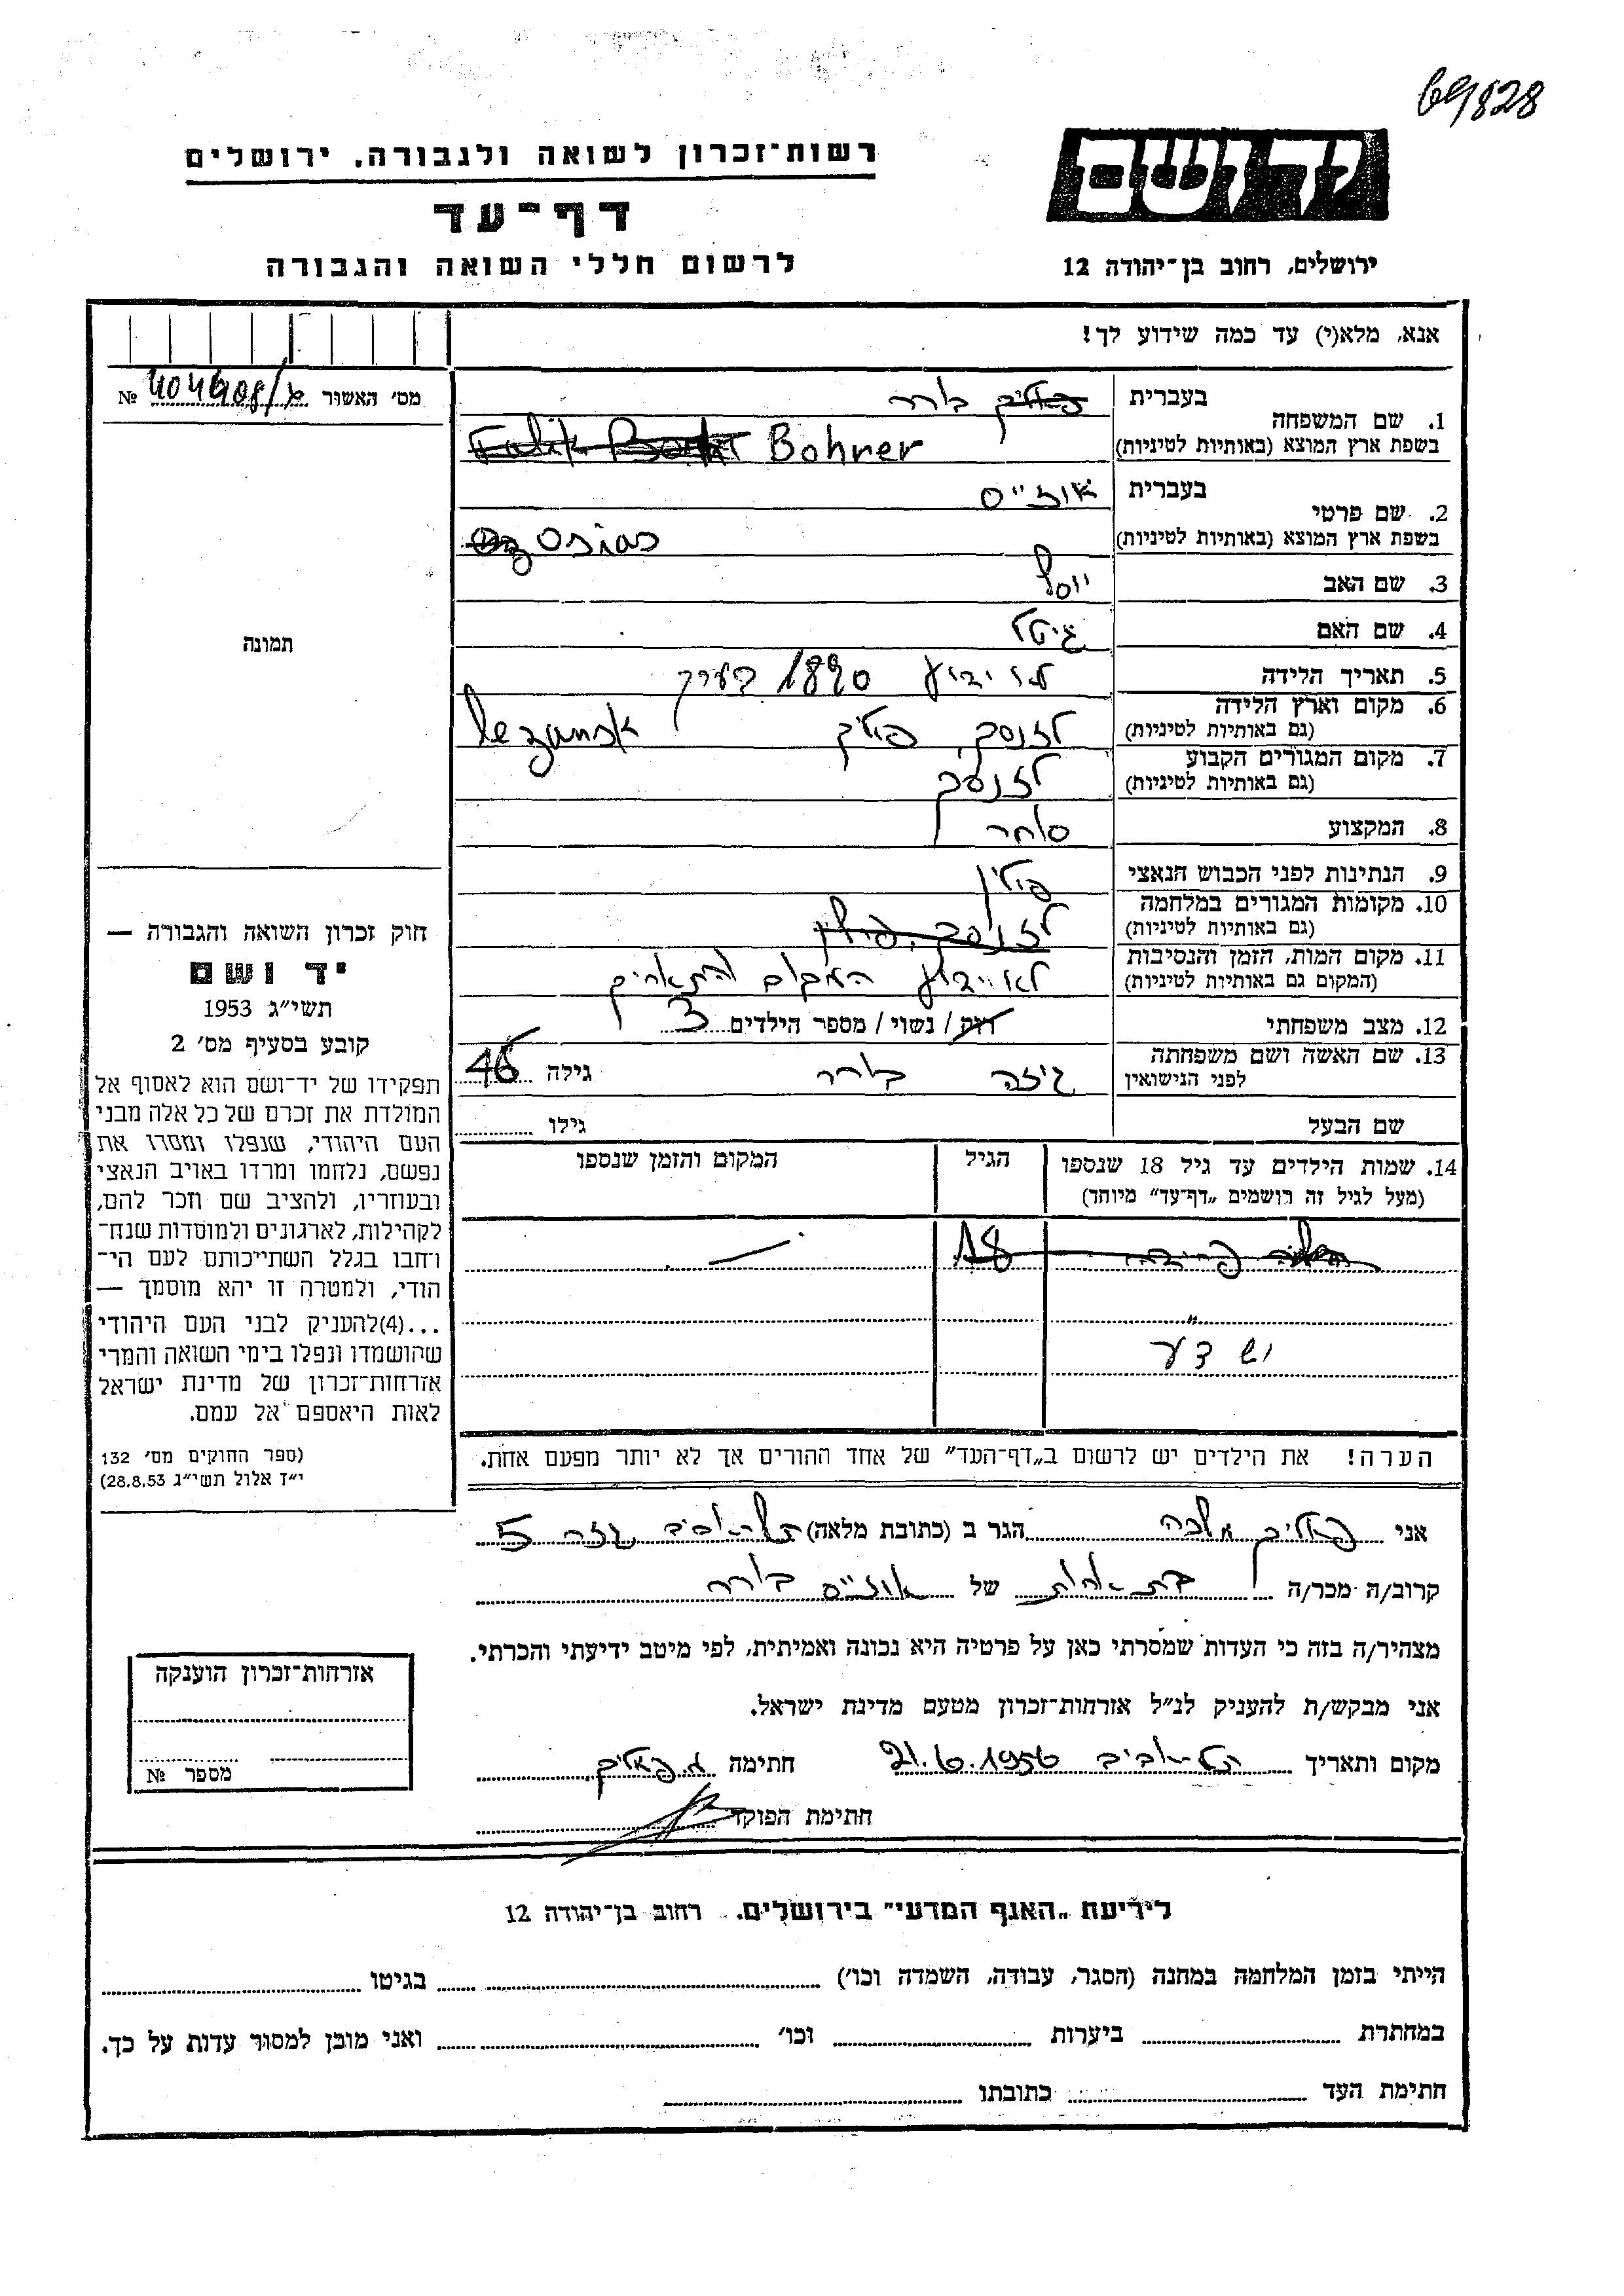 69828
יד ושם
רשות־זכרון לשואה ולגבורה, ירושלים
דף־עד
לרשום חללי השואה והגבורה
ירושלים, רחוב בן־יהודה 12
אנא, מלא(י) עד כמה שידוע לך!
מס׳ האשור №
1. שם המשפחה
בעברית פאליק בורר
בשפת ארץ המוצא (באותיות לטיניות) Falik Bohrer
2. שם פרטי
בעברית אוזייס
בשפת ארץ המוצא (באותיות לטיניות) Ozosias
3. שם האב יוסף
4. שם האם גיטל
5. תאריך הלידה לא ידוע 1890 בערך
6. מקום וארץ הלידה
(גם באותיות לטיניות) לזנסק, פולין lezansk
7. מקום המגורים הקבוע
(גם באותיות לטיניות) לזנסק
8. המקצוע סוחר
9. הנתינות לפני הכבוש הנאצי פולין
10. מקומות המגורים במלחמה
(גם באותיות לטיניות) לזנסק, פולין
11. מקום המות, הזמן והנסיבות
(המקום גם באותיות לטיניות) לא ידוע המקום והתאריך
12. מצב משפחתי רוק / נשוי / מספר הילדים 3
13. שם האשה ושם משפחתה
לפני הנישואין גיזה בורר גילה 46
שם הבעל גילו
14. שמות הילדים עד גיל 18 שנספו
(מעל לגיל זה רושמים „דף־עד״ מיוחד)
הגיל
המקום והזמן שנספו
18
יש דע
הערה! את הילדים יש לרשום ב„דף־העד״ של אחד ההורים אך לא יותר מפעם אחת.
תמונה
חוק זכרון השואה והגבורה —
יד ושם
תשי״ג 1953
קובע בסעיף מס׳ 2
תפקידו של יד־ושם הוא לאסוף אל
המולדת את זכרם של כל אלה מבני
העם היהודי, שנפלו ומסרו את
נפשם, נלחמו ומרדו באויב הנאצי
ובעוזריו, ולהציב שם וזכר להם,
לקהילות, לארגונים ולמוסדות שנח־
רבו בגלל השתייכותם לעם הי־
הודי, ולמטרה זו יהא מוסמך —
...(4)להעניק לבני העם היהודי
שהושמדו ונפלו בימי השואה והמרי
אזרחות־זכרון של מדינת ישראל
לאות היאספם אל עמם.
(ספר החוקים מס׳ 132
י״ז אלול תשי״ג 28.8.53)
אני פאליק מלכה הגר ב (כתובת מלאה) תל־אביב עזה 5
קרוב/ה מכר/ה בת־אחות של אוזייס בורר
מצהיר/ה בזה כי העדות שמסרתי כאן על פרטיה היא נכונה ואמיתית, לפי מיטב ידיעתי והכרתי.
אני מבקש/ת להעניק לנ״ל אזרחות־זכרון מטעם מדינת ישראל.
מקום ותאריך תל־אביב 21.6.1956 חתימה מ. פאליק
חתימת הפוקד
אזרחות־זכרון הוענקה
מספר №
לידיעת „האגף המדעי״ בירושלים. רחוב בן־יהודה 12
הייתי בזמן המלחמה במחנה (הסגר, עבודה, השמדה וכו׳) בגיטו
במחתרת ביערות וכו׳ ואני מוכן למסור עדות על כך.
חתימת העד כתובתו